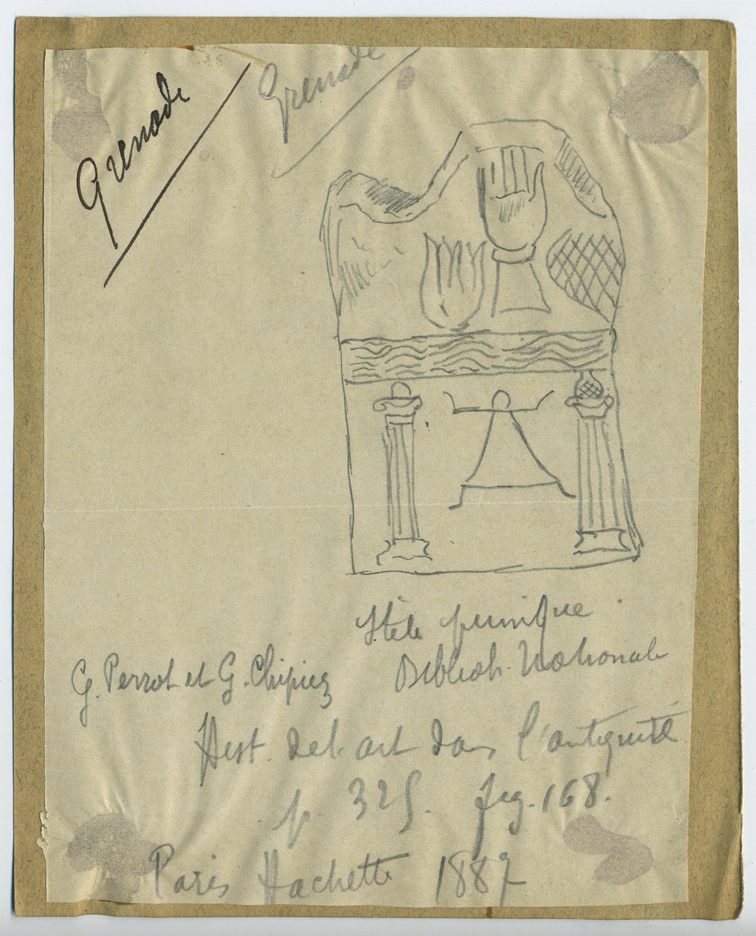 Grenade
Grenade
Stèle punique.
Biblioth. Nationale
G. Perrot et G. Chipiez
Hist. de l'art dans l'antiquité
p. 325. fig. 168.
Paris Hachette 1887